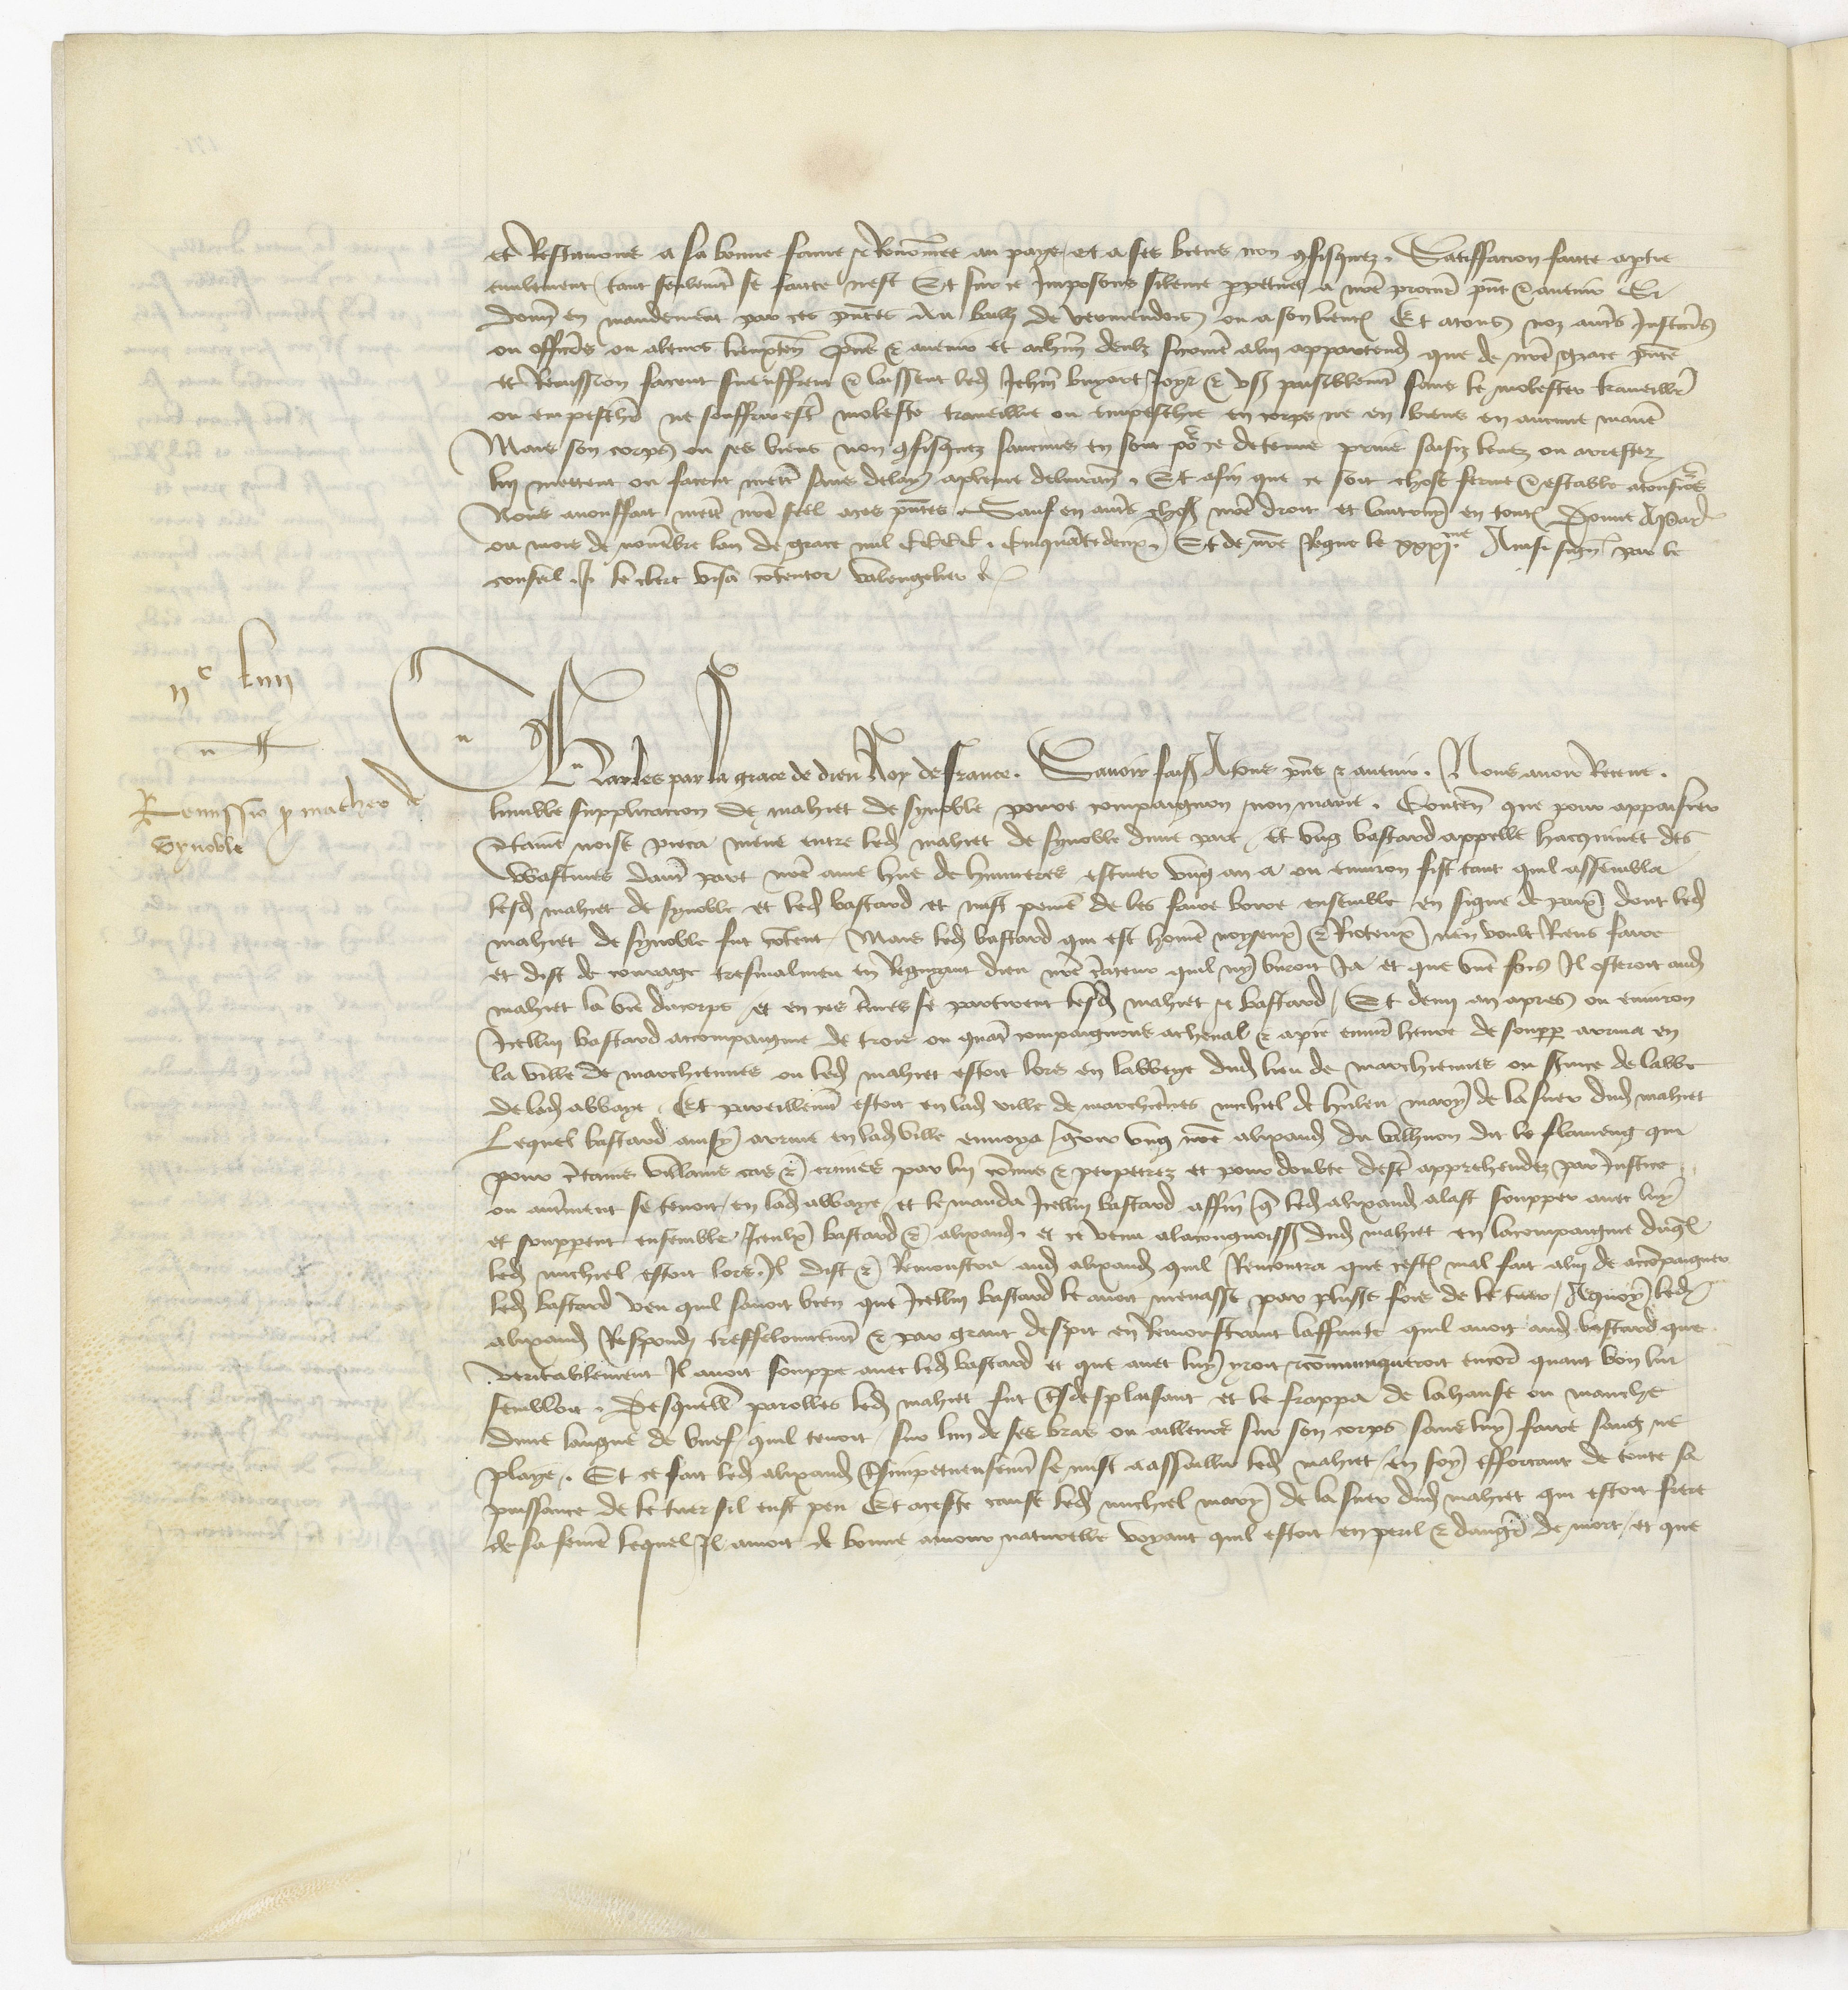 et Restituons a sa bonne fame & Renommee au pays et a ses biens non 9fisquez. Satisfacion faicte a ptie
civilement tant seulemt se faicte nest Et sur ce Imposons silence ppetuel a nre procur pnt & avenir Si
donns en mandement par ces pntes Au bailli de vermendois ou a son lieuten Et a tous noz autres Justiciers
ou officiers ou a leurs lieuxten pns & avenir et a chun deulx si comme a lui appartendra que de nre grace pnte
et Remission facent sueuffrent & laissent led Jehan buyart Joyr & user paisiblemt sans le molester travaillier
ou empeschier ne souffrir estre moleste travaillie ou empeschie en corps ne en biens en aucune manie
Mais son corps ou ses biens non 9fisquez saucuns en sont pour ce detenuz prins saisiz levez ou arrestez
lui mettent ou facent mettre sans delay a plaine delivrance. Et afin que ce soit chose ferme & estable a tousiours
Nous avons fait mettre nre seel a ces pntes Sauf en autres choses nre droit et lautruy en toutes Donne A Paris
ou mois de novembre lan de grace mil CCCC. Cinquante deux. Et de nre Regne le xxxjme Ainsi signe par le
conseil J. le clerc visa contentor valengelier
ijc liiii
Remissio p matheo de
Synoble
Charles par la grace de dieu Roy de france. Savoir faisons A tous pns & avenir. Nous avoir Receue.
lumble supplicacion de mahiet de synoble povre compaignon non marie. Conten que pour appaisier
certaine noise pieca meue entre led mahiet de synoble dune part Et ung bastard appelle hacquinet des
Wastines dautre part nre ame hue de humieres escuier ung an a ou environ fist tant quil assembla
lesd mahiet de synoble et led bastard et mist peine de les faire boire ensemble en signe de paix dont led
mahiet de synoble fut content Mais led bastard qui est homme noyseux & Rioteux nen voult Riens faire
et dist de courage tresmalmeu en Regniant dieu nre createur quil ny buroit Ja et que une fois Il osteroit aud
mahiet la vie du corps et en ces termes se partirent lesd mahiet & bastard Et demi an apres ou environ
Icellui bastard accompaigne de trois ou quatre compaignons a cheval & a pie environ heure de soupper arriva en
la ville de marchiennes ou led mahiet estoit lors en labbaye dud lieu de marchiennes ou service de labbe
de lad abbaye Et pareillemt estoit en lad ville de marchiennes michiel de hulen mary de la suer dud mahiet
Lequel bastard ainsy arrive en lad ville envoya querir ung nomme alixandre du vallhuon dit le flameng qui
pour certains villains cas & crimes par lui commis & perpetrez et pour doubte destre apprehendez par Justice
ou autrement se tenoit en lad abbaye et le manda Icellui bastard affin que led alixandre alast soupper avec luy
et soupperent ensemble Iceulx bastard & alixandre et ce venu a la congnoissance dud mahiet en la compaignie duquel
led michiel estoit lors Il dist & Remonstra aud alixandre quil Rencontra que cestoit mal fait a lui de acompaignier
led bastard veu quil savoit bien que Icellui bastard le avoit menasse par plusieurs fois de le tuer Aquoy led
alixandre Respondi tresfelonnemt & par grant despit en Remonstrant laffinite quil avoit aud bastard que
veritablement Il avoit souppe avec led bastard et que avec luy yroit & communiqueroit encores quant bon lui
sembleroit Desquelles parolles led mahiet fut tresdesplaisant et le frappa de la hanste ou manche
dune langue de buef quil tenoit sur lun de ses bras ou ailleurs sur son corps sans luy faire sang ne
playe. Et ce fait led alixandre tresimpetueusemt se mist a assaillir led mahiet en soy efforcant de toute sa
puissance de le tuer sil eust peu Et a ceste cause led michiel mary de la suer dud mahiet qui estoit frere
de sa femme lequel Il avoit de bonne amour naturelle voyant quil estoit en peril & dangier de mort et que